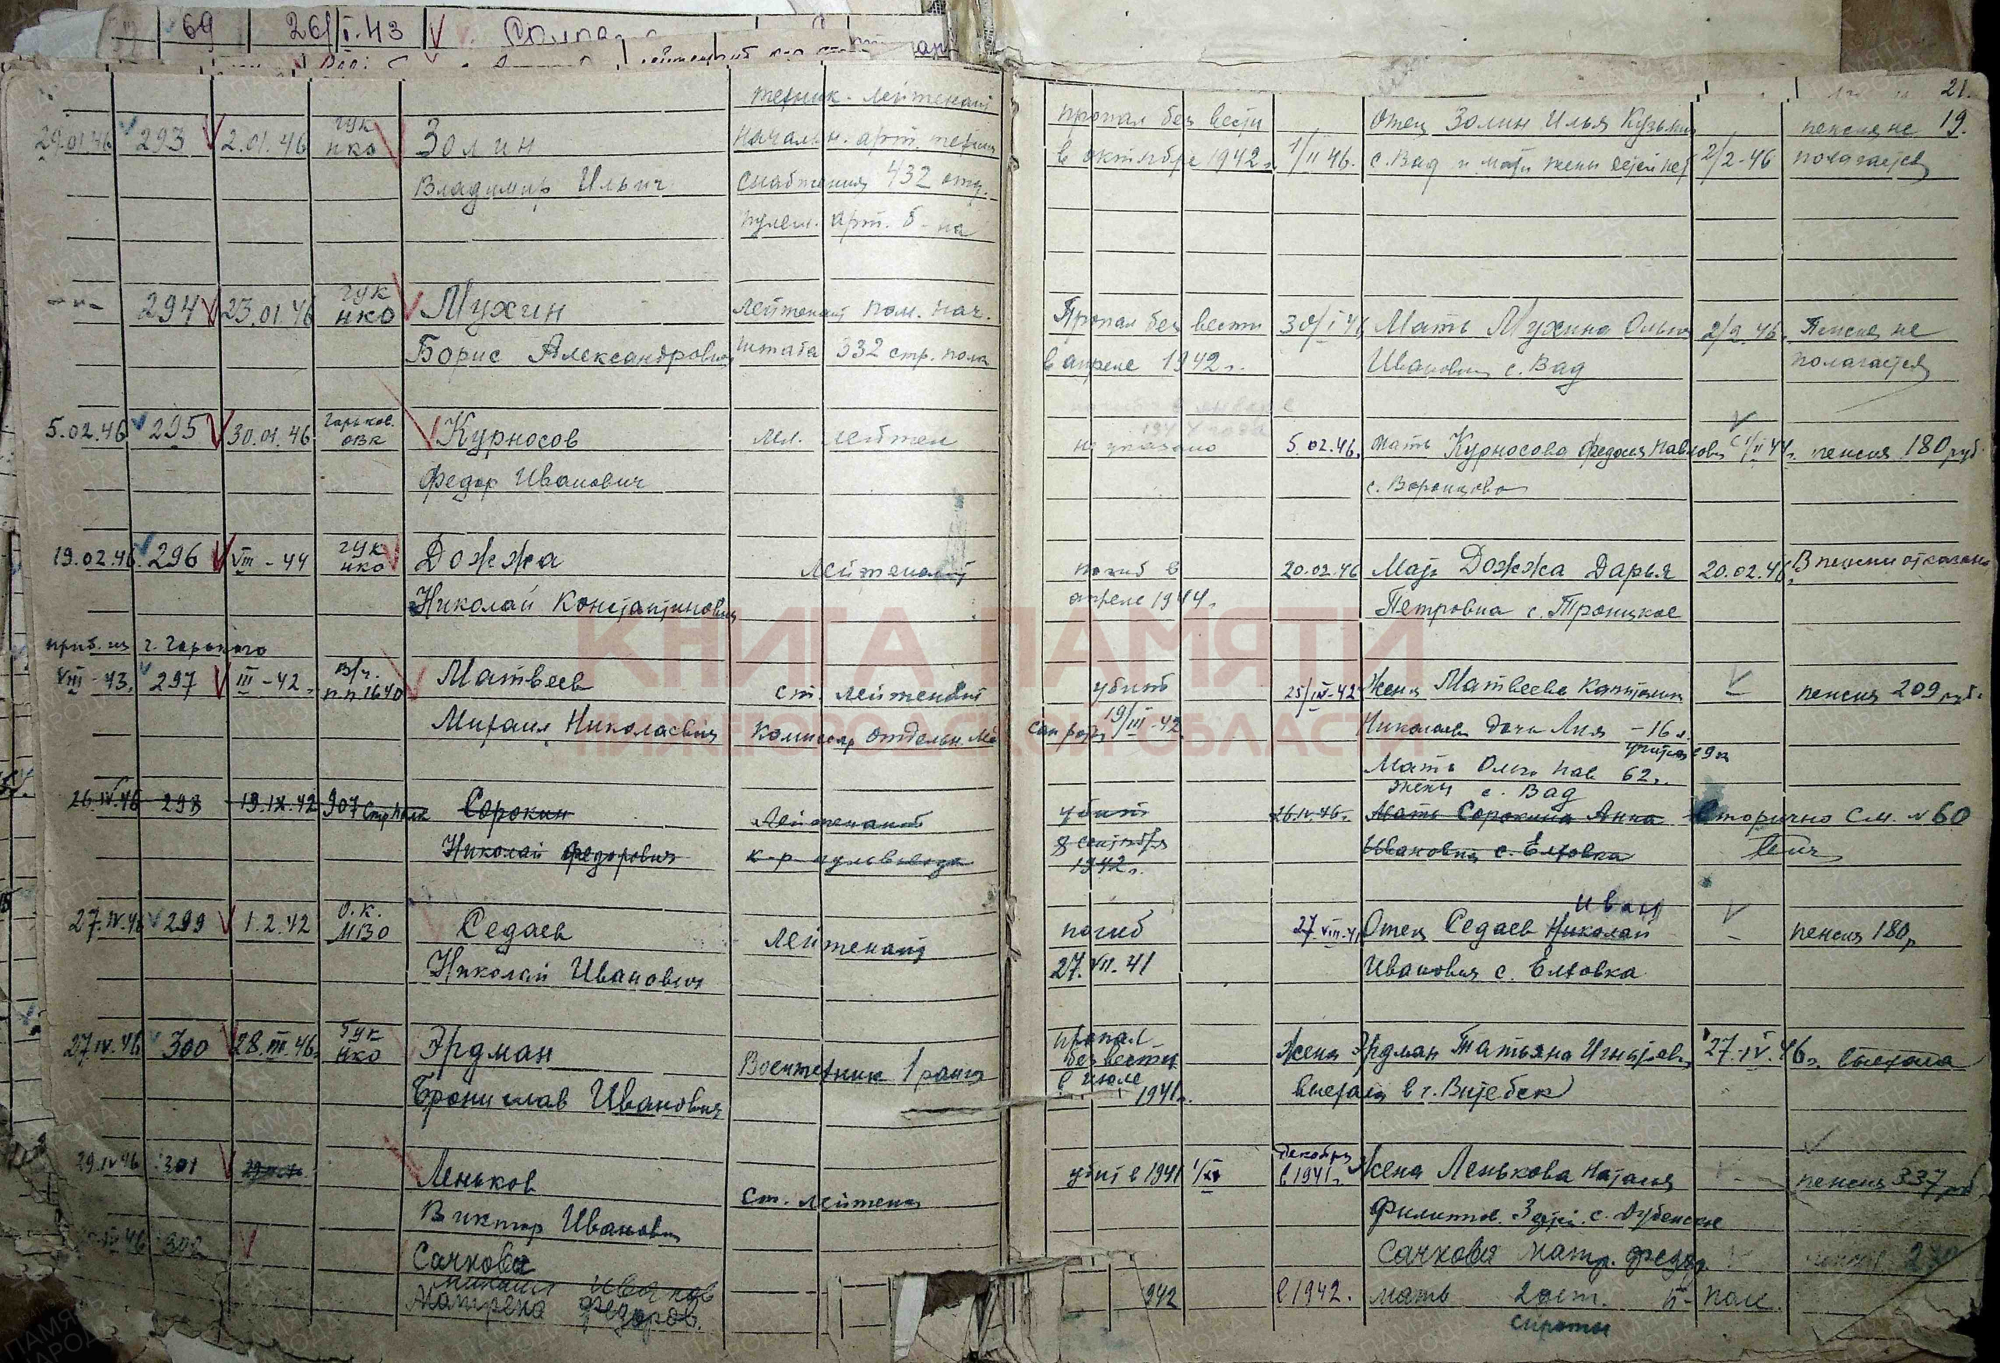 69 26/I.43
21.
техник-лейтенант
29.01.46 293 2.01.46 ГУК НКО Золин начальн. арт. техник пропал без вести отец Золин Илья Кузьмич пенсия не 19.
Владимир Ильич снабжения 432 отд. в октябре 1942 г. 1/II 46. с. Вад и мать жены детей нет 2/2-46 полагается
пулем. арт. б-на
-"- 294 23.01.46 ГУК НКО Мухин лейтенант пом. нач. Пропал без вести 30/I 46 Мать Мухина Ольга 2/2.46. Пенсия не
Борис Александрович штаба 332 стр. полка в апреле 1942 г. Ивановна с. Вад полагается
5.02.46 295 30.01.46 Горьков. ОВК Курносов мл. лейтен не указано 5.02.46. мать Курносова Федосия Павловн с 1/II 44 г. пенсия 180 руб.
Федор Иванович с. Воронцово
19.02.46. 296 VIII-44 ГУК НКО Дожжа лейтенант погиб в 20.02.46 Мать Дожжа Дарья 20.02.46. В пенсии отказано
Николай Константинович апреле 1944 г. Петровна с. Троицкое
приб. из г. Горького
VIII-43. 297 III-42. В/ч. п.п 1640 Матвеев ст. лейтенант убит 25/IV-42 Жена Матвеева Капитолин пенсия 209 руб.
Михаил Николаевич комиссар отдельн. сан роты 19/III-42. Николаевн дочь Лия -16 л.
Мать Ольга Пав 62 г.
жены с. Вад
26.IV.46 298 19.IX.42 907 стр полк Сорокин Лейтенант убит 26.IV.46. Мать Сорокина Анна Вторично см. №60
Николай Федорович к-р пульвзвода 8 сентября 1942 г. Ивановна с. Елховка
Иван
27.IV.46 299 1.2.42 О.К. МВО Седаев лейтенант погиб 27.VIII-41 Отец Седаев Николай - пенсия 180 р
Николай Иванович 27.VII.41 Иванович с. Елховка
27.IV.46 300 28.III.46. ГУК НКО Эрдман Воентехник 1 ранга пропал без вести в июле 1941 г. Жена Эрдман Татьяна Игнатьевн 27.IV.46 г. выехала
Бронислав Иванович выехала в г. Витебск
29.IV 46 301 Леньков ст. лейтенант убит в 1941 декабря в 1941 г. Жена Ленькова Наталья пенсия 337 руб
Виктор Иванович Филиппов. с. Дубенское
46 302 Сачкова Сачковая Матр. Федор.
Михаил Иванов
Матрена Федоров. 942 в 1942. мать
сироты
КНИГА ПАМЯТИ
НИЖЕГОРОДСКОЙ ОБЛАСТИ